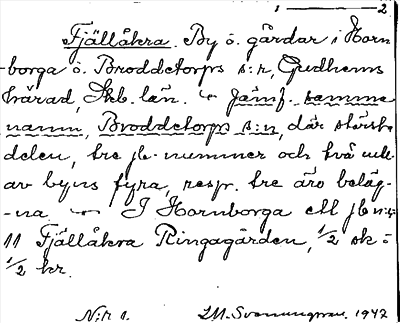 1 — 2
Fjällåkra. By o. gårdar i Horn-
borga o. Broddetorps s:r, Gudhems
härad, Skb. län. — Jämf. samma
namn, Broddetorps s:n, där största
delen, tre jb-nummer och två
av byns fyra, resp. tre äro beläg-
-na. — I Hornborga ett jb n:r
11 Fjällåkra Ringagården, 1/2 sk o
1/2 kr.
N:r 1. I.M. Svenungsson. 1942